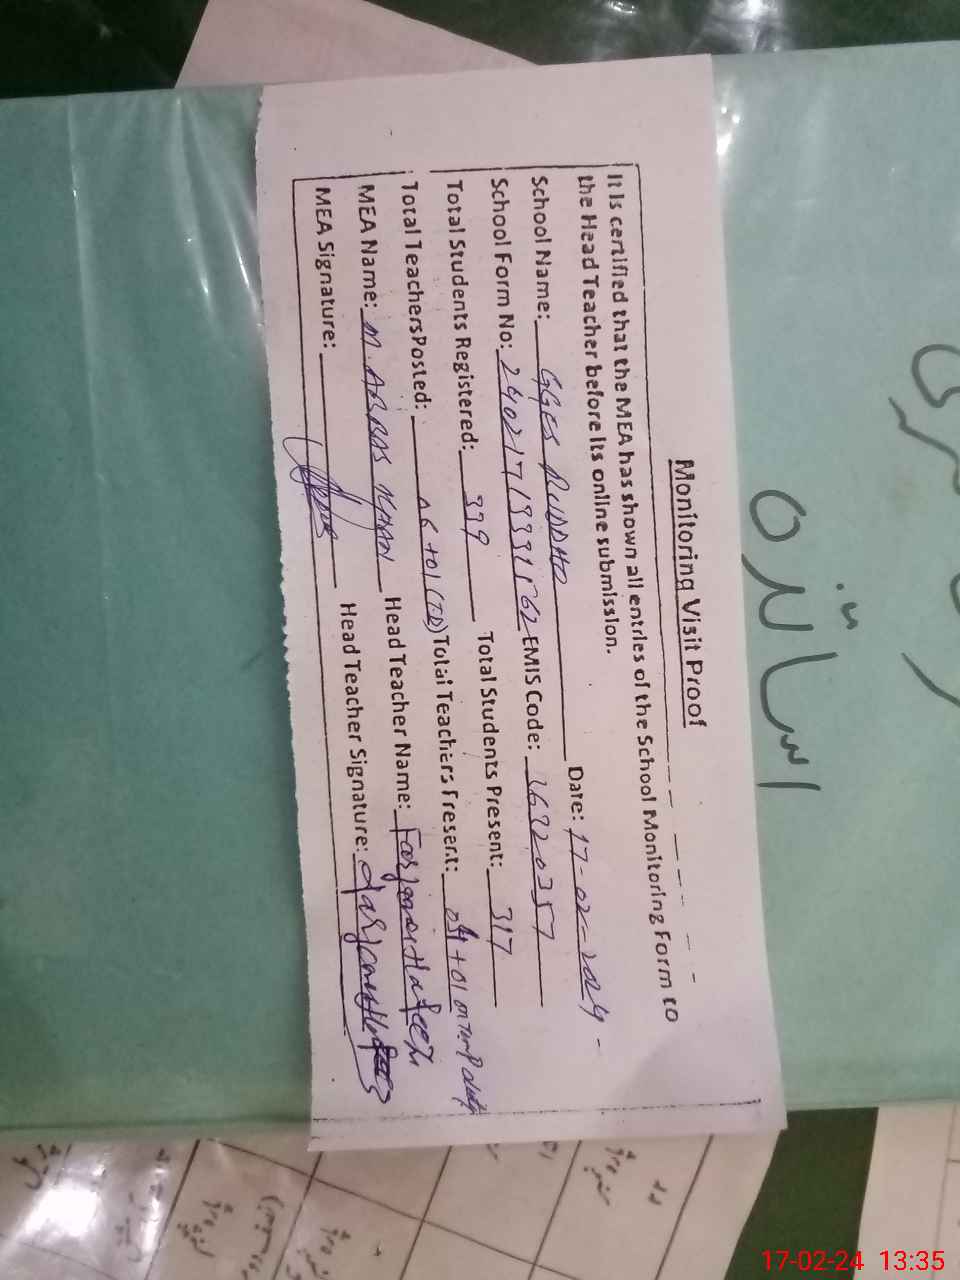 اساتذہ
Monitoring Visit Proof
It is certified that the MEA has shown all entries of the School Monitoring Form to
the Head Teacher before its online submission.
School Name: GGES RUDDHO Date: 17-02-2024
School Form No: EMIS Code:
Total Students Registered: 339 Total Students Present: 317
Total TeachersPosted: 06 +01 (TD) Total Teachers Present: 04 +01 on Temp duty
MEA Name: M. ABBAS KHAN Head Teacher Name: Farzana Hafeez
MEA Signature: Head Teacher Signature:
17-02-24 13:35